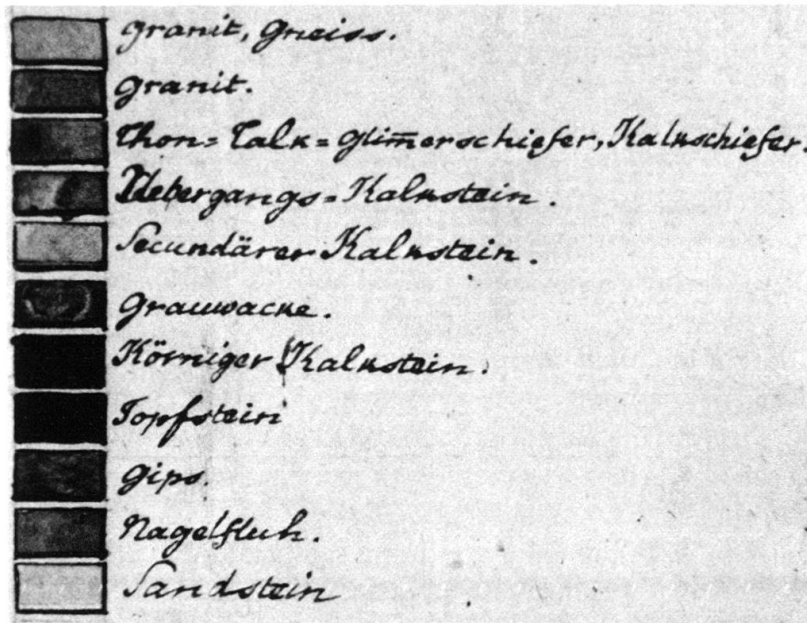 Granit, Gneiss.
Granit.
Thon= Talk= Glim̄erschiefer, Kalkschiefer.
Uebergangs= Kalkstein.
Secundärer Kalkstein.
Grauwacke.
Körniger Kalkstein.
Topfstein
Gips.
Nagelfluh.
Sandstein